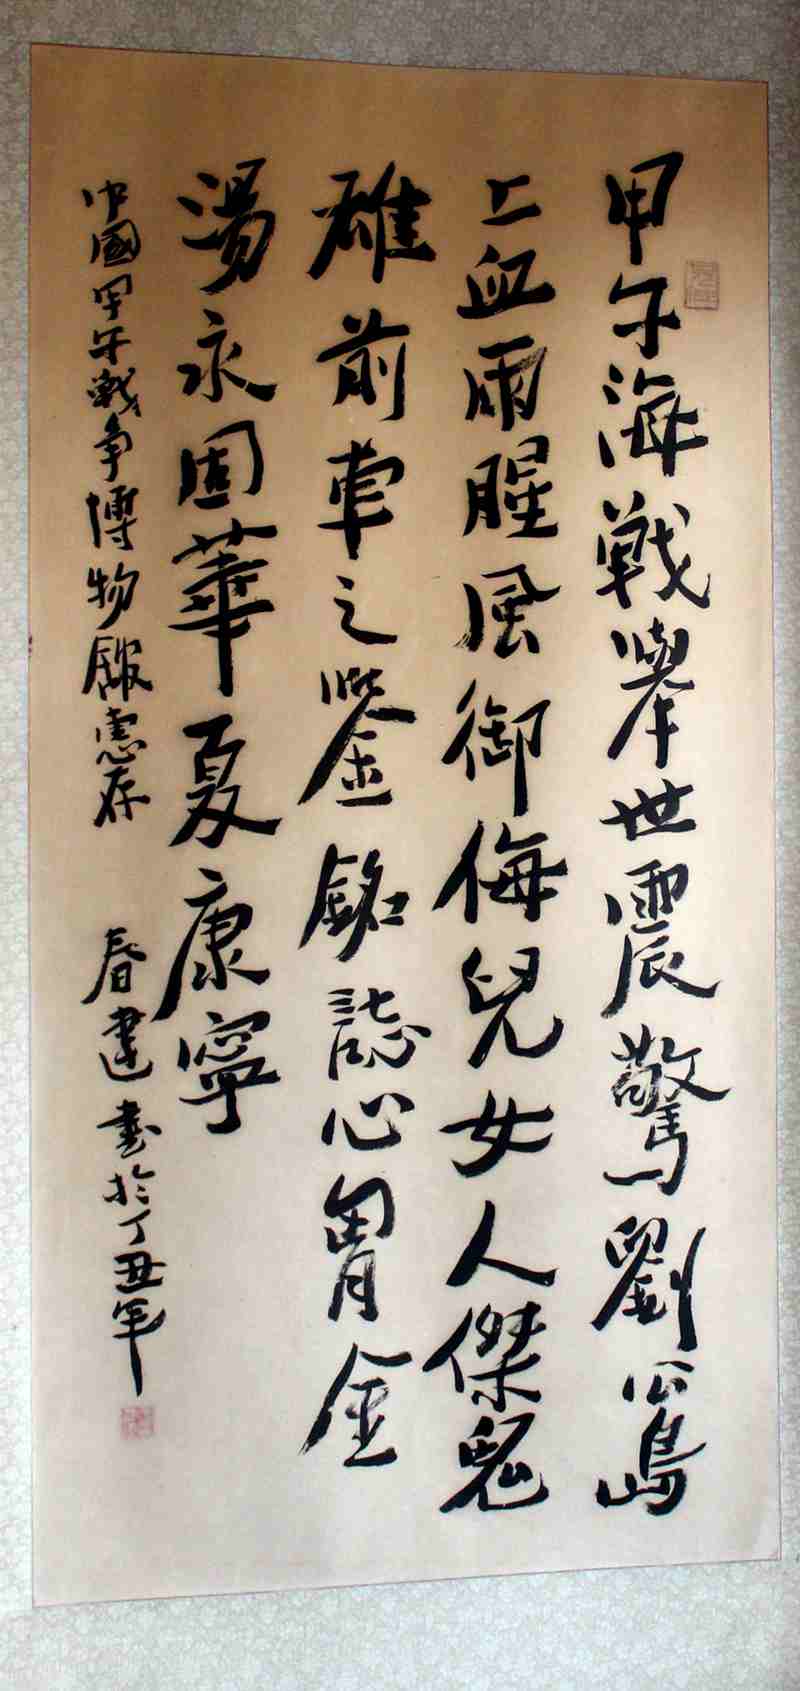 甲午海戰舉世震驚劉公島
上血雨腥風御侮兒女人傑鬼
雄前車之鑒銘誌心胃金
湯永固華夏康寧
中國甲午戰争博物館惠存
春建書於丁丑年